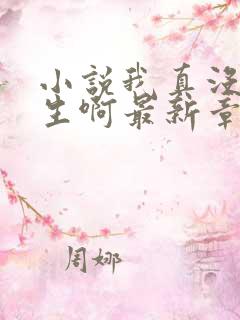 小説我真没
生啊最新章
周娜